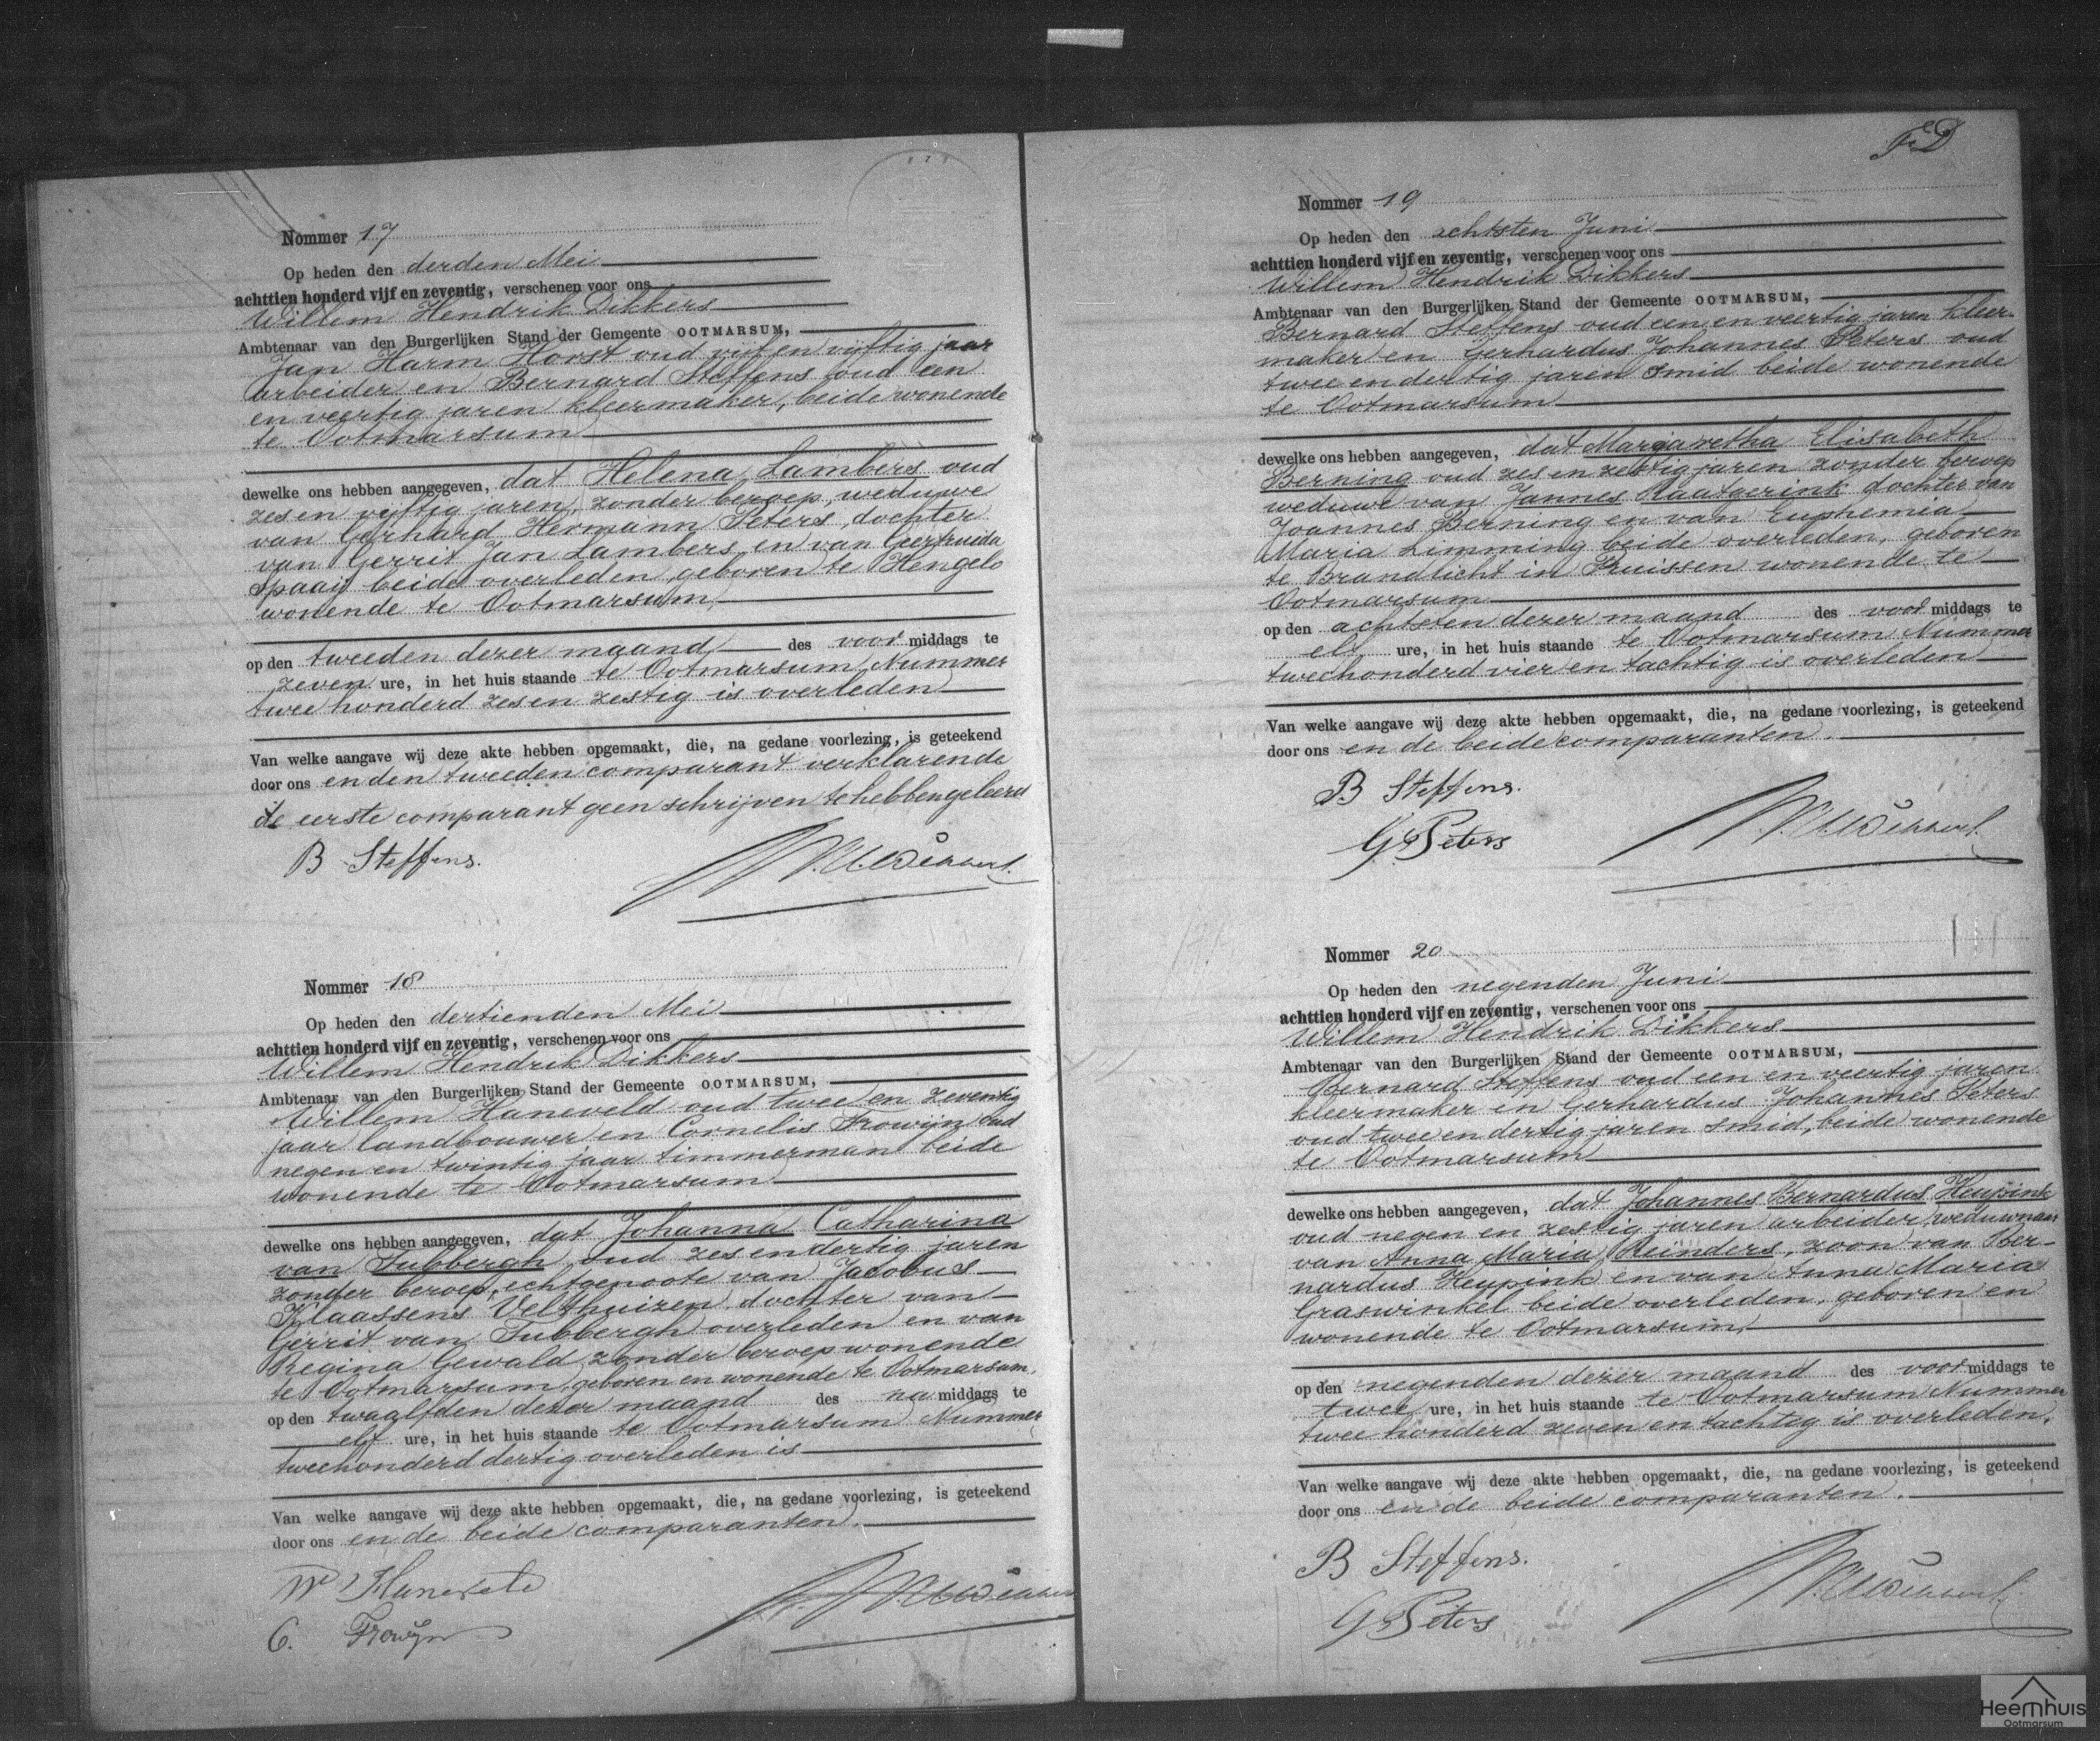 Nommer 17
Op heden den derden Mei
achttien honderd vijf en zeventig, verschenen voor ons
Willem Hendrik Dikkers
Ambtenaar van den Burgerlijken Stand der Gemeente OOTMARSUM,
Jan Harm Horst oud vijf en vijftig jaar
arbeider en Bernard Steffens oud een
en veertig jaren kleermaker, beide wonende
te Ootmarsum
dewelke ons hebben aangegeven, dat Helena Lambers oud
zes en vijftig jaren, zonder beroep, weduwe
van Gerhard Hermann Peters, dochter
van Gerrit Jan Lambers en van Geertruida
Spaaij beide overleden, geboren te Hengelo
wonende te Ootmarsum,
op den tweeden dezer maand, des voor middags te
zeven ure, in het huis staande te Ootmarsum, Nummer
twee honderd zes en zestig is overleden
Van welke aangave wij deze akte hebben opgemaakt, die, na gedane voorlezing, is geteekend
door ons en den tweeden comparant verklarende
de eerste comparant geen schrijven te hebben geleerd
B Steffens.
W.H. Dikkers.
Nommer 18
Op heden den dertienden Mei
achttien honderd vijf en zeventig, verschenen voor ons
Willem Hendrik Dikkers
Ambtenaar van den Burgerlijken Stand der Gemeente OOTMARSUM,
Willem Haneveld oud twee en zeventig
jaar landbouwer en Cornelis Frowijn oud
negen en twintig jaar timmerman beide
wonende te Ootmarsum
dewelke ons hebben aangegeven, dat Johanna Catharina
van Tubbergh oud zes en dertig jaren
zonder beroep, echtgenoote van Jacobus
Klaassens Velthuizen dochter van
Gerrit van Tubbergh overleden en van
Regina Gewald, zonder beroep wonende
te Ootmarsum, geboren en wonende te Ootmarsum,
op den twaalfden dezer maand des na middags te
elf ure, in het huis staande te Ootmarsum Nummer
tweehonderd dertig overleden is
Van welke aangave wij deze akte hebben opgemaakt, die, na gedane voorlezing, is geteekend
door ons en de beide comparanten.
W Haneveld
C. Frowijn
W.H. Dikkers
Nommer 19
Op heden den achtsten Juni
achttien honderd vijf en zeventig, verschenen voor ons
Willem Hendrik Dikkers
Ambtenaar van den Burgerlijken Stand der Gemeente OOTMARSUM,
Bernard Steffens oud een en veertig jaren kleer-
maker en Gerhardus Johannes Peters oud
twee en dertig jaren smid beide wonende
te Ootmarsum
dewelke ons hebben aangegeven, dat Margaretha Elisabeth
Berning oud zes en zestig jaren zonder beroep
weduwe van Jannes Raatgerink dochter van
Joannes Berning en van Euphemia
Maria Limming beide overleden, geboren
te Brandlicht in Pruissen wonende te
Ootmarsum
op den achtsten dezer maand des voor middags te
elf ure, in het huis staande te Ootmarsum Nummer
tweehonderd vier en tachtig is overleden
Van welke aangave wij deze akte hebben opgemaakt, die, na gedane voorlezing, is geteekend
door ons en de beide comparanten.
B Steffens.
W.H. Dikkers.
GJ Peters
Nommer 20
Op heden den negenden Juni
achttien honderd vijf en zeventig, verschenen voor ons
Willem Hendrik Dikkers
Ambtenaar van den Burgerlijken Stand der Gemeente OOTMARSUM,
Bernard Steffens oud een en veertig jaren
kleermaker en Gerhardus Johannes Peters
oud twee en dertig jaren smid, beide wonende
te Ootmarsum
dewelke ons hebben aangegeven, dat Johannes Bernardus Heupink
oud negen en zestig jaren arbeider, weduwnaar
van Anna Maria Reinders, zoon van Ber-
nardus Heupink en van Anna Maria
Graswinkel beide overleden, geboren en
wonende te Ootmarsum,
op den negenden dezer maand des voor middags te
twee ure, in het huis staande te Ootmarsum Nummer
twee honderd zeven en tachtig is overleden.
Van welke aangave wij deze akte hebben opgemaakt, die, na gedane voorlezing, is geteekend
door ons en de beide comparanten.
B Steffens.
W.H. Dikkers.
GJ Peters
Heemhuis
Ootmarsum